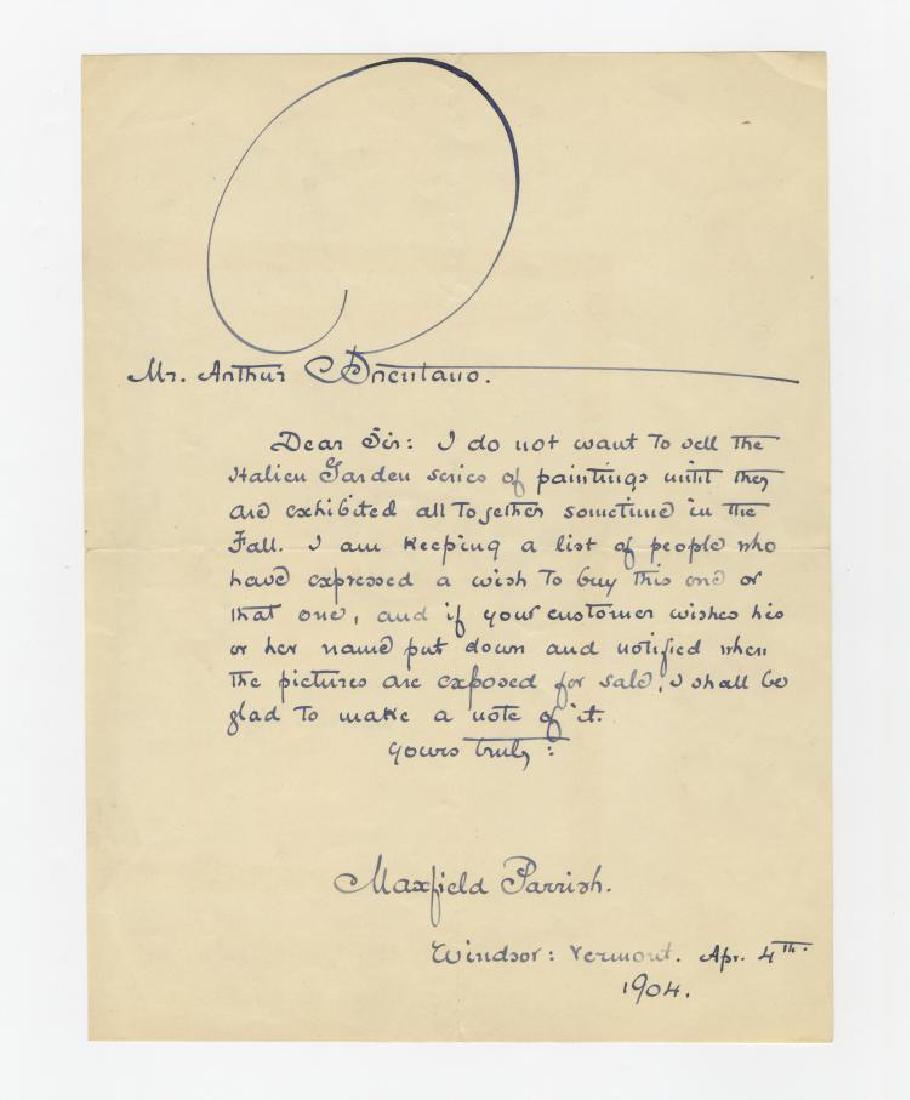 Mr. Arthur Brentano.
Dear Sir: I do not want to sell the
Italien Garden series of paintings until they
are exhibited all together sometime in the
Fall. I am keeping a list of people who
have expressed a wish to buy this one or
that one, and if your customer wishes his
or her name put down and notified when
the pictures are exposed for sale, I shall be
glad to make a note of it.
Yours truly:
Maxfield Parrish.
Windsor: Vermont. Apr. 4th.
1904.